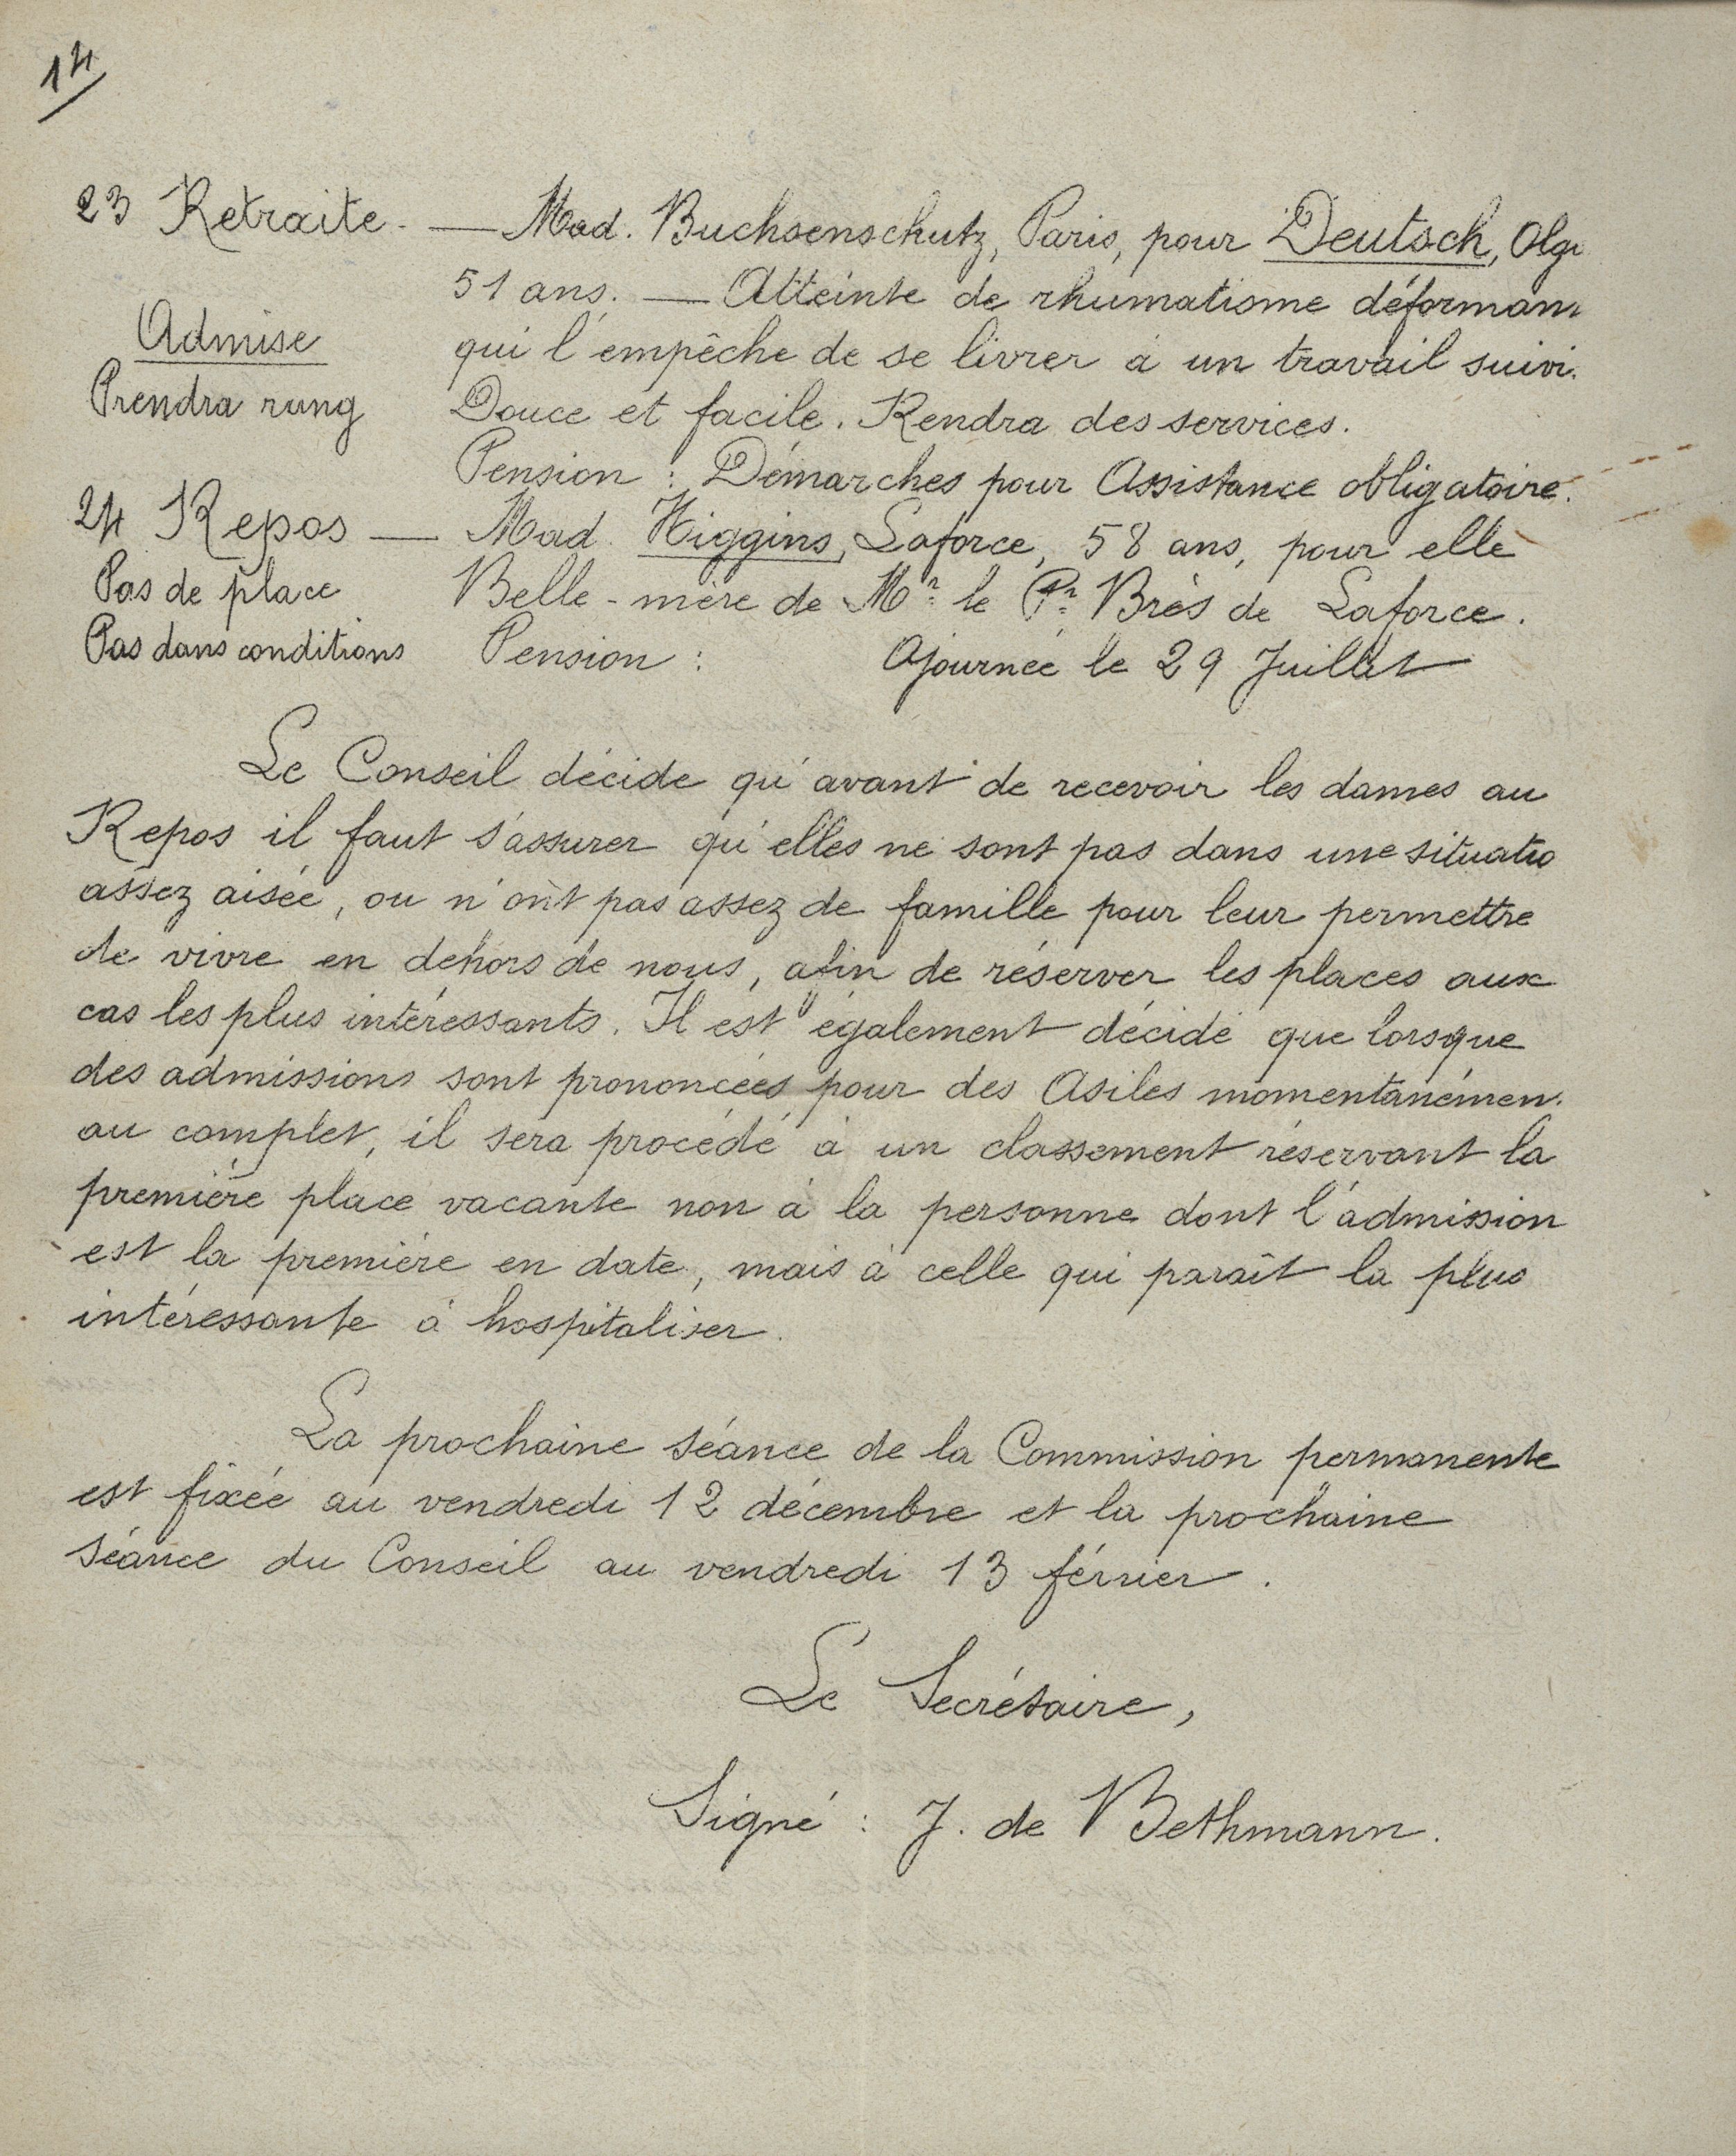 14
23 Retraite. — Mad. Buchsenschutz, Paris, pour Deutsch, Olga
51 ans. — Atteinte de rhumatisme déforman
Admise
qui l'empêche de se livrer à un travail suivi.
Prendra rang
Douce et facile. Rendra des services.
Pension : Démarches pour Assistance obligatoire.
24 Repos — Mad. Higgins, Laforce, 58 ans, pour elle
Pas de place
Belle-mère de Mr. le Pr. Brès de Laforce.
Pas dans conditions
Pension : Ajournée le 29 Juillet
Le Conseil décide qu'avant de recevoir les dames au
Repos il faut s'assurer qu'elles ne sont pas dans une situatio
assez aisée, ou n'ont pas assez de famille pour leur permettre
de vivre en dehors de nous, afin de réserver les places aux
cas les plus intéressants. Il est également décidé que lorsque
des admissions sont prononcées pour des Asiles momentanémen
au complet, il sera procédé à un classement réservant la
première place vacante non à la personne dont l'admission
est la première en date, mais à celle qui paraît la plus
intéressante à hospitaliser.
La prochaine séance de la Commission permanente
est fixée au vendredi 12 décembre et la prochaine
séance du Conseil au vendredi 13 février.
Le Secrétaire,
Signé : J. de Bethmann.